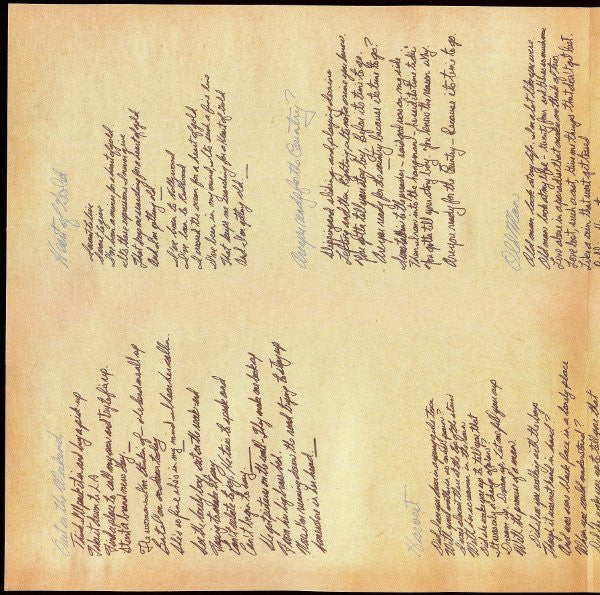 Out on the Weekend
Harvest
Heart of Gold
Are you ready for the Country?
Old Man